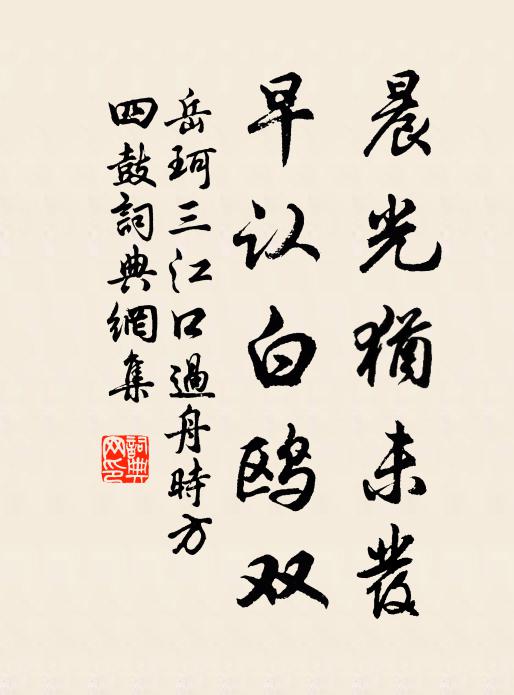 晨光猶未發
早认白鸥双
岳珂三江口過舟時方
四鼓詞典網集
詞典网印